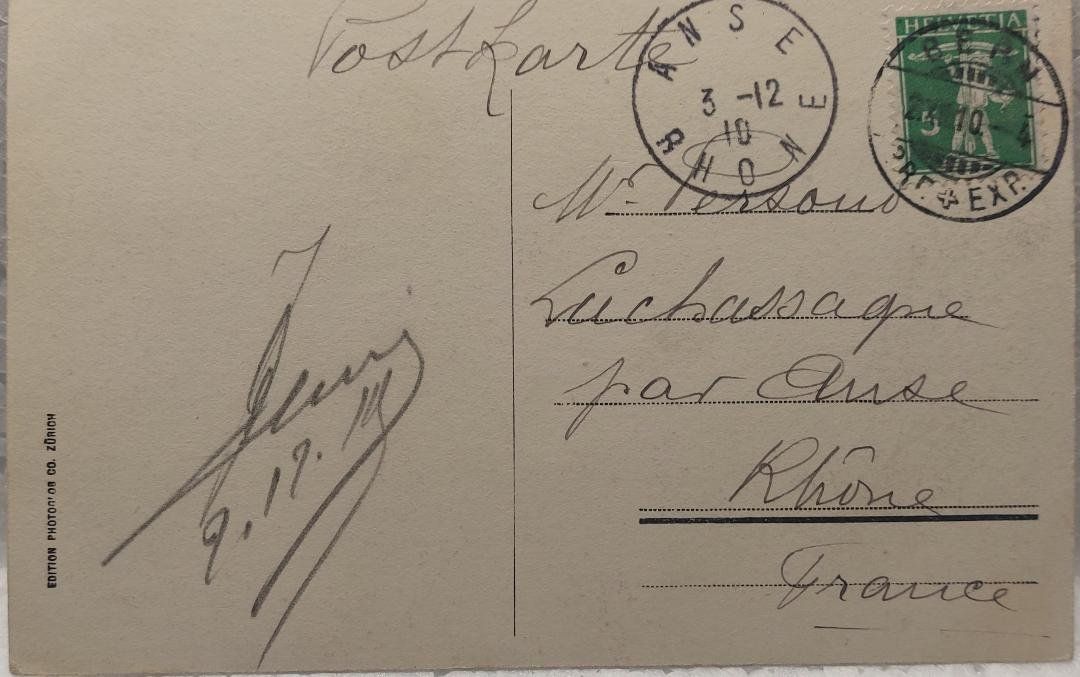 Postkarte
ANSE
3 -12
10
RHONE
HELVETIA
5
BERN
10
BRF. EXP.
Mr Persoud
Luchassagne
par Anse
Rhône
France
EDITION PHOTOGLOB CO. ZÜRICH